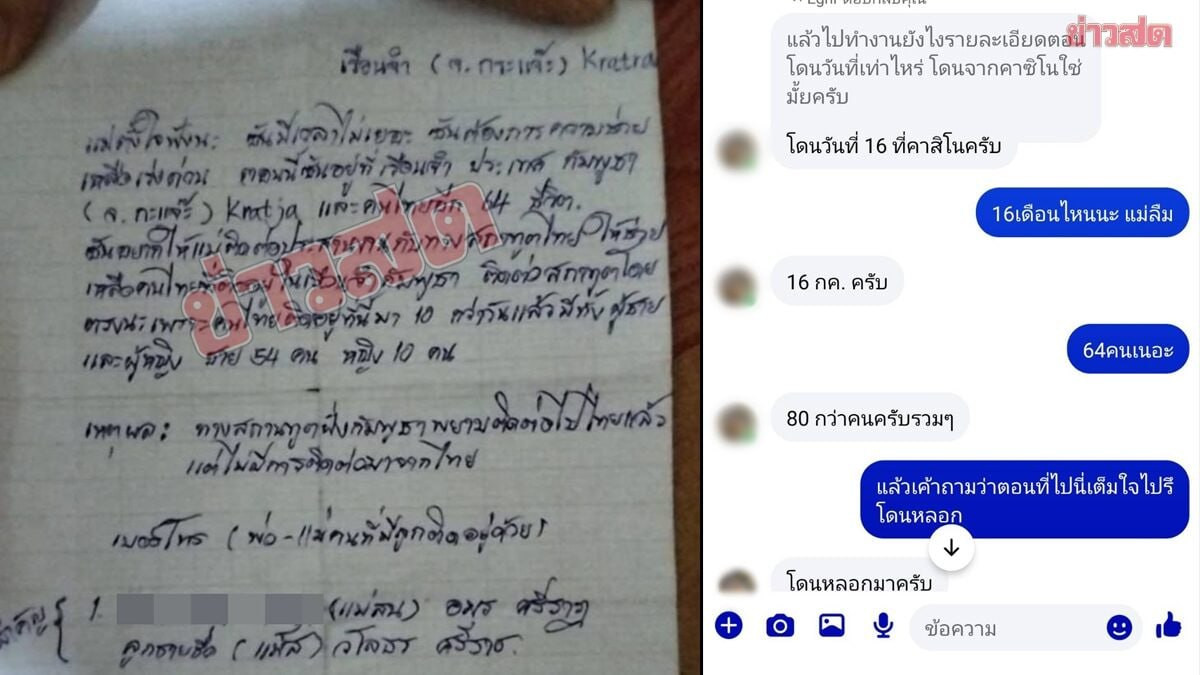 เรือนจำ ( จ. กระแจ๊ะ) Kratja
แม่ตั้งใจฟังนะ ฉันมีเวลาไม่เยอะ ฉันต้องการความช่วย
เหลือเร่งด่วน ตอนนี้ฉันอยู่ที่เรือนจำ ประเทศ กัมพูชา
( จ. กะแจ๊ะ) Kratja และคนไทยอีก 64 ชีวิต.
ฉันอยากให้แม่ติดต่อประสานงานกับทางสถานทูตไทย ให้ช่วย
เหลือคนไทยที่ติดอยู่ในเรือนจำกัมพูชา ติดต่อสถานทูตโดย
ตรงนะเพราะคนไทยติดอยู่ที่นี่มา 10 กว่าวันแล้วมีทั้ง ผู้ชาย
และผู้หญิง ชาย 54 คน หญิง 10 คน
เหตุผล: ทางสถานทูตฝั่งกัมพูชาพยามติดต่อไปไทยแล้ว
แต่ไม่มีการติดต่อมาจากไทย
เบอร์โทร (พ่อ-แม่คนที่มีลูกติดอยู่ด้วย)
1. (แม่สน)
ลูกชายชื่อ (แม็ส)
ข่าวสด
แล้วไปทำงานยังไงรายละเอียดตอน
โดนวันที่เท่าไหร่ โดนจากคาซิโนใช่
มั้ยครับ
ข่าวสด
โดนวันที่ 16 ที่คาสิโนครับ
16เดือนไหนนะ แม่ลืม
16 กค. ครับ
64คนเนอะ
80 กว่าคนครับรวมๆ
แล้วเค้าถามว่าตอนที่ไปนี่เต็มใจไปรึ
โดนหลอก
โดนหลอกมาครับ
ข้อความ